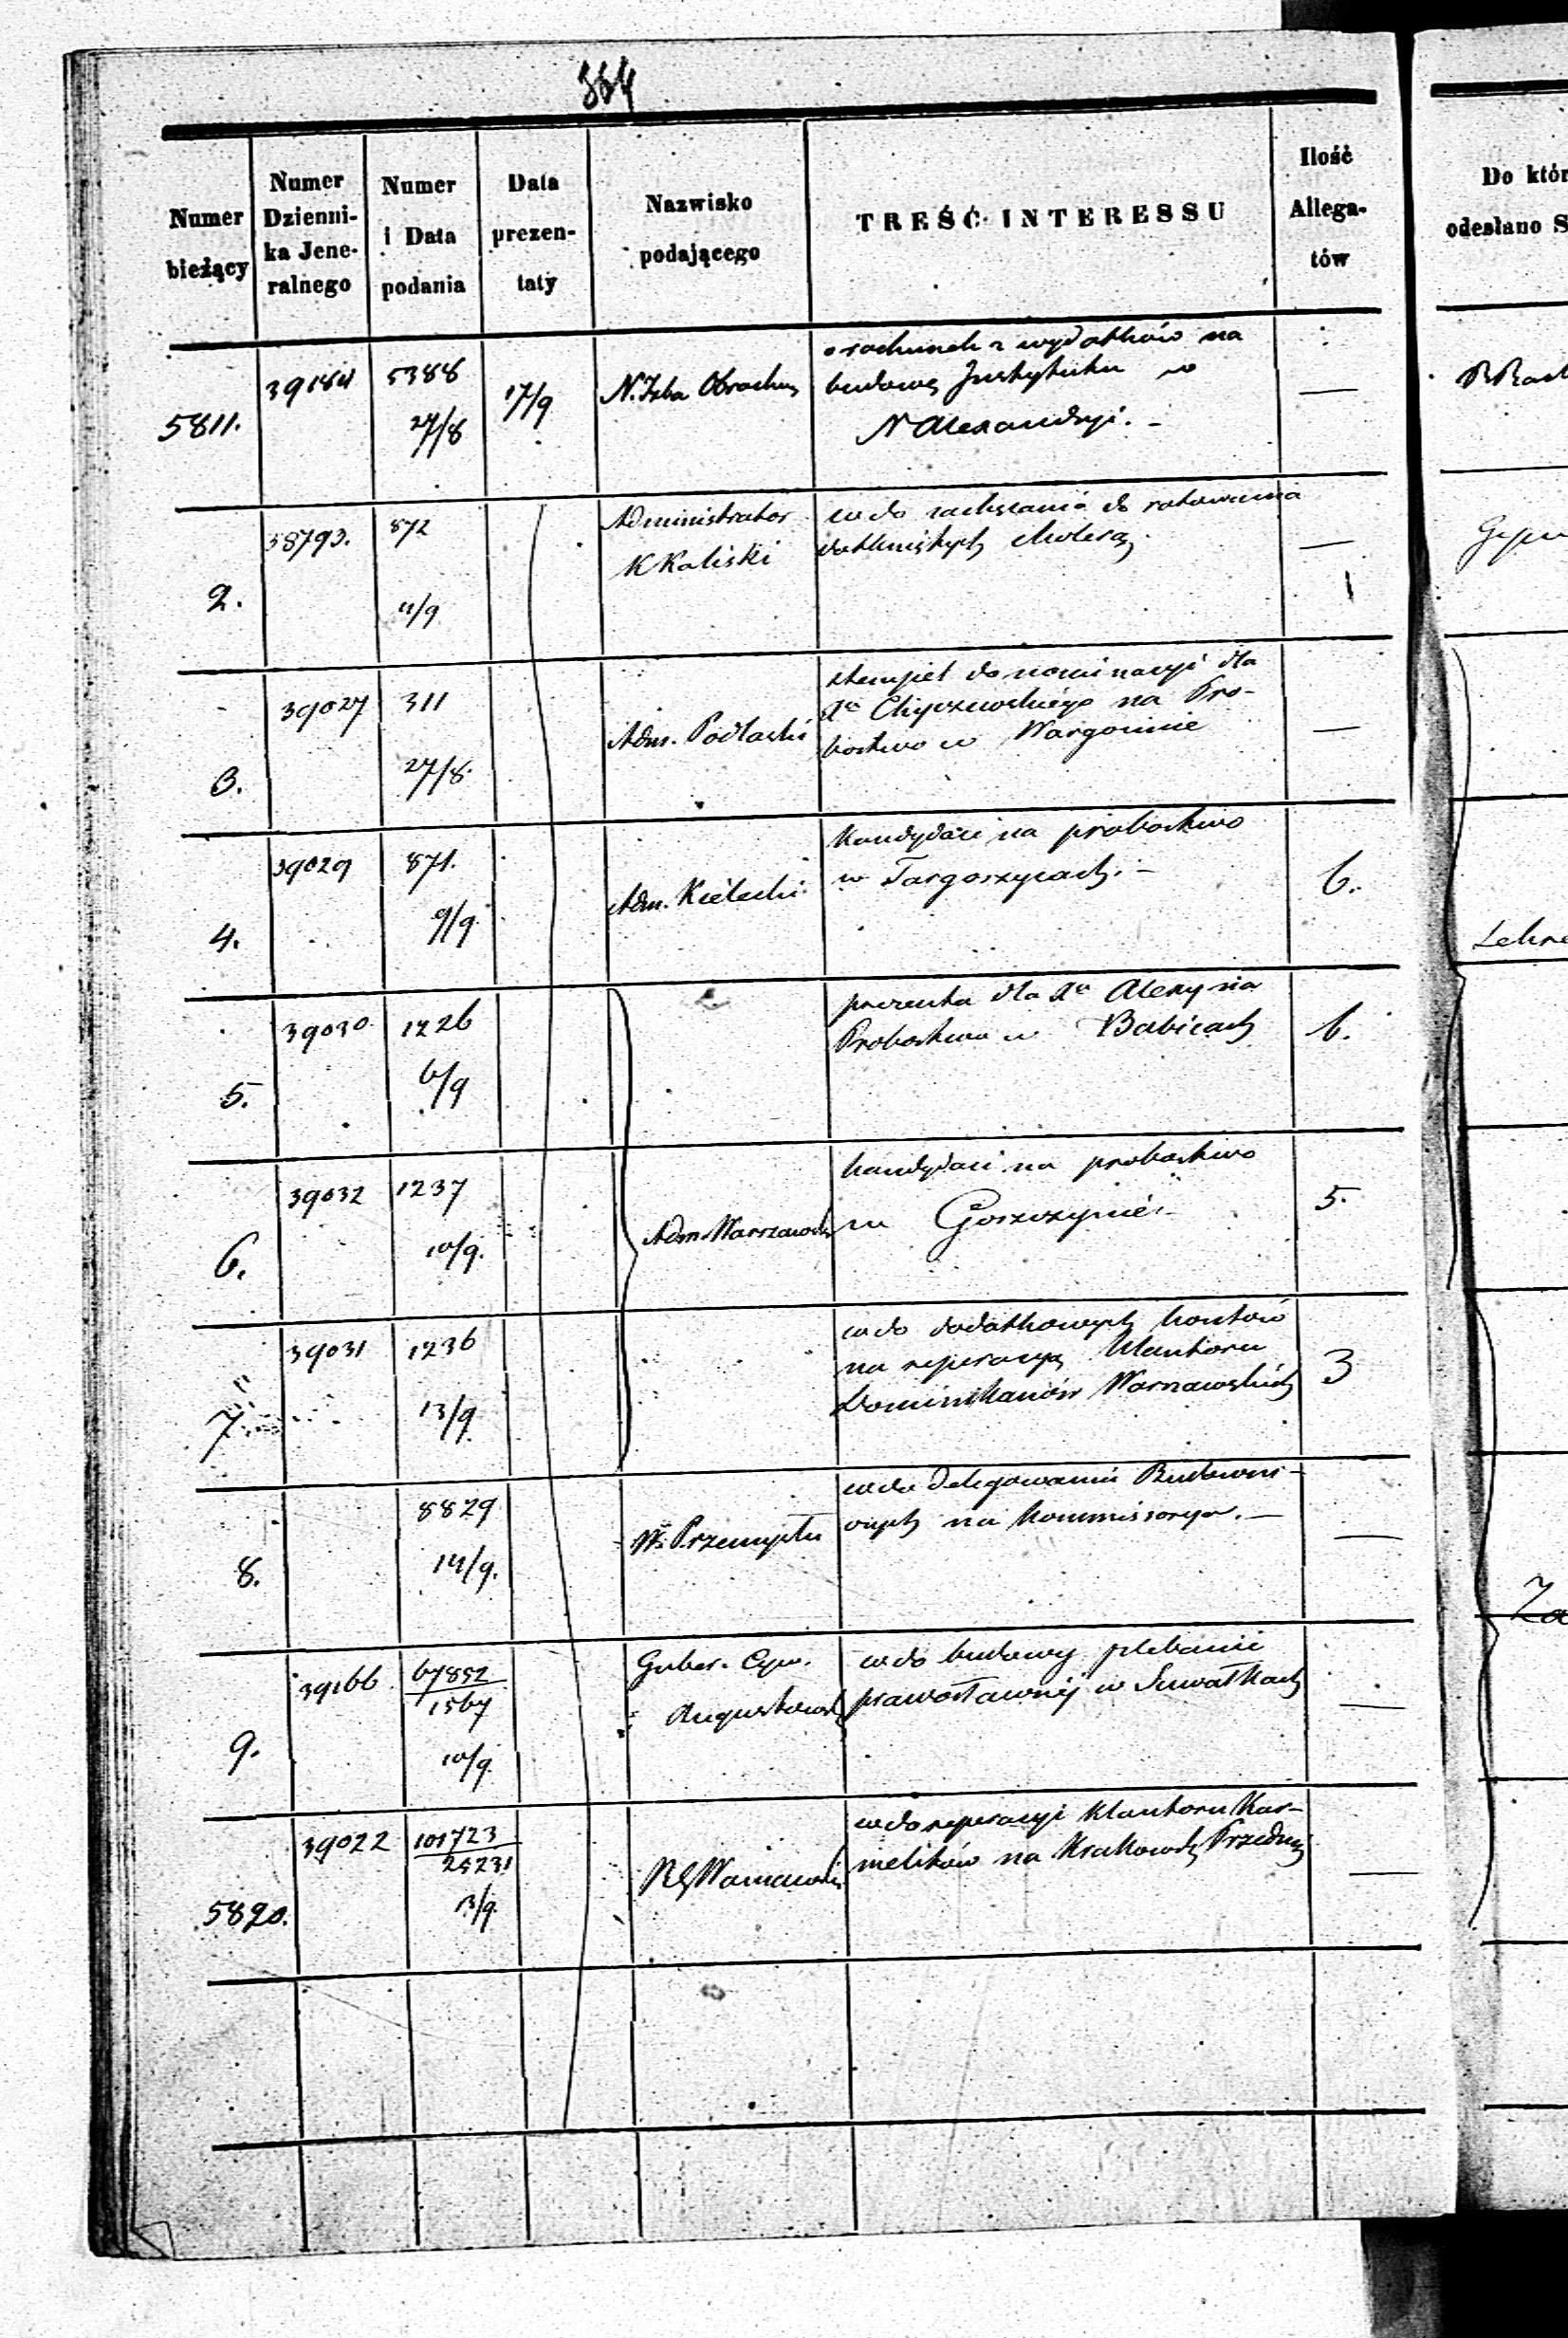 354
Numer bieżący
Numer Dzienni-ka Jene-ralnego
Numer i Data podania
Data prezen-taty
Nazwisko podającego
TREŚĆ INTERESSU
Ilość Allega-tów
Do któr
odesłano S
5811.
39184
5388
27/8
17/9
N. Izba Obrachun
o rachunek z wydatków na
budowę Instytutu w
N Alexandryi. -
—
2.
38793.
872
11/9
Administrator
K Kaliski
co do zachęcania do ratowania
dotkniętych cholerą.
—
3.
39027
311
27/8.
Adm. Podlaski
stempel do nominacyi dla
Xa na Pro-
bostwo w
—
4.
39029
871.
9/9
Adm. Kielecki
Kandydaci na probostwo
w Targoszycach. -
6.
5.
39030
1226
6/9
prezenta dla Xa Alexy na
Probostwo w Babicach
6.
6.
39032
1237
10/9.
Adm. Warszawski
kandydaci na probostwo
w Goszczynie. -
5.
7.
39031
1236
13/9
co do dodatkowych kosztów
na reperacyą klasztoru
Dominikanów Warszawskich
3
8.
8829
14/9.
W. Przemysłu
co do delegowania Budowni-
czych na kommissorya. —
—
9.
39166
67852
1567
10/9
Guber. Cyw.
Augustowski
co do budowy plebanii
prawosławnej w Suwałkach
—
5820.
39022
101723
25231
13/9
RG Warszawski
co do reperacyi Klasztoru Kar-
melitów na Krakowsk Przedm
—